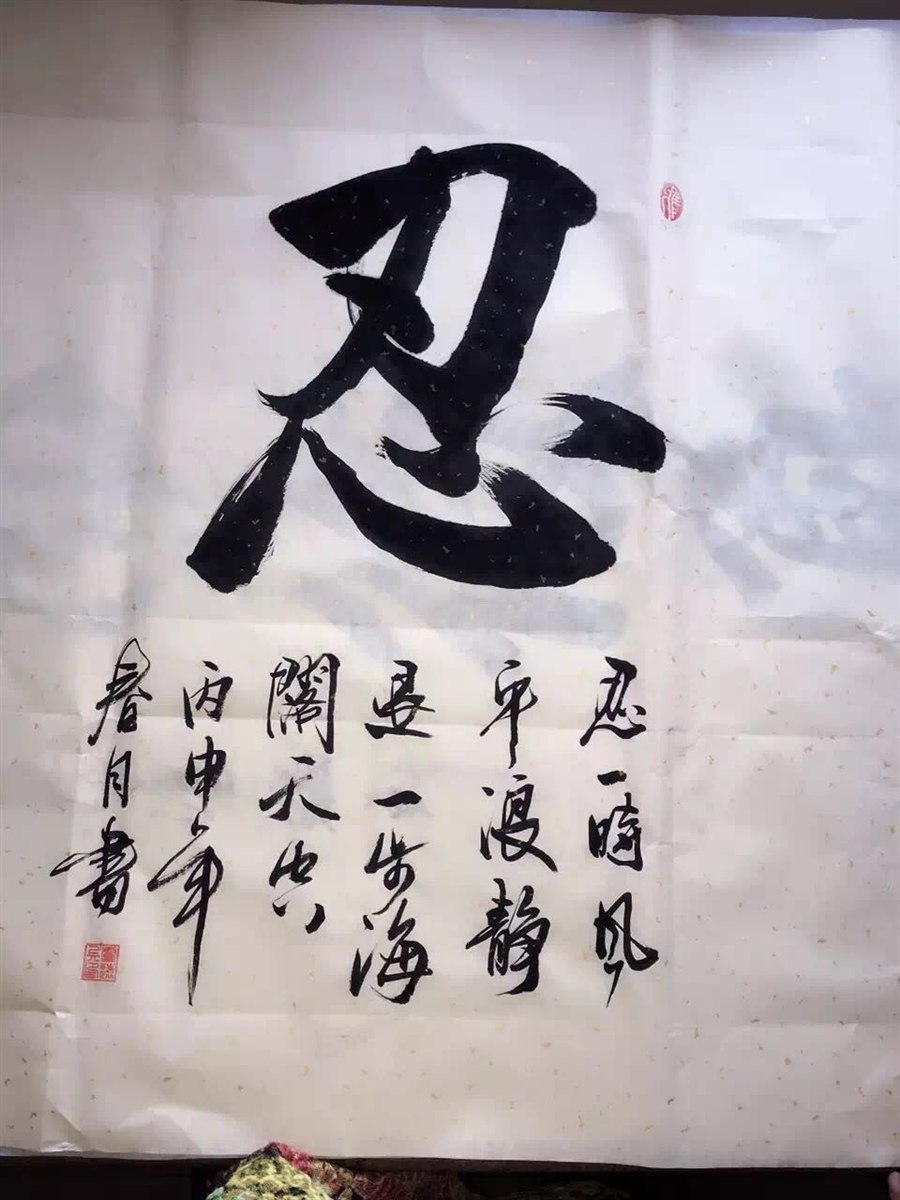 忍
忍一時風
平浪静
退一步海
闊天空
丙申年
春月書